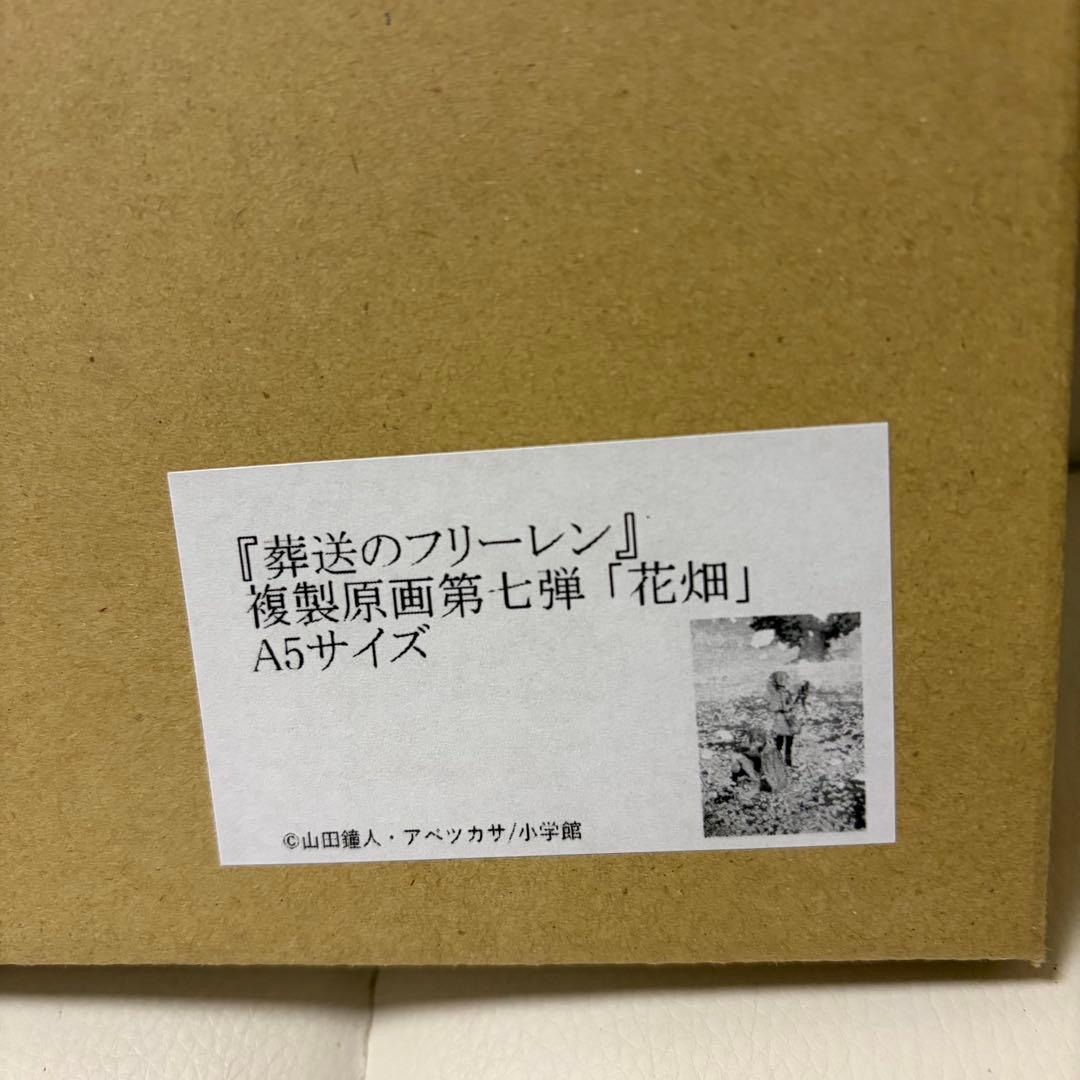 『葬送のフリーレン』
複製原画第七弾「花畑」
A5サイズ
©山田鐘人・アベツカサ/小学館